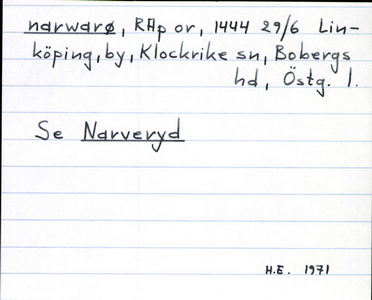 narwarø, RAp or, 1444 29/6 Lin-
köping, by, Klockrike sn, Bobergs
hd, Östg. l.
Se Narveryd
H.E. 1971